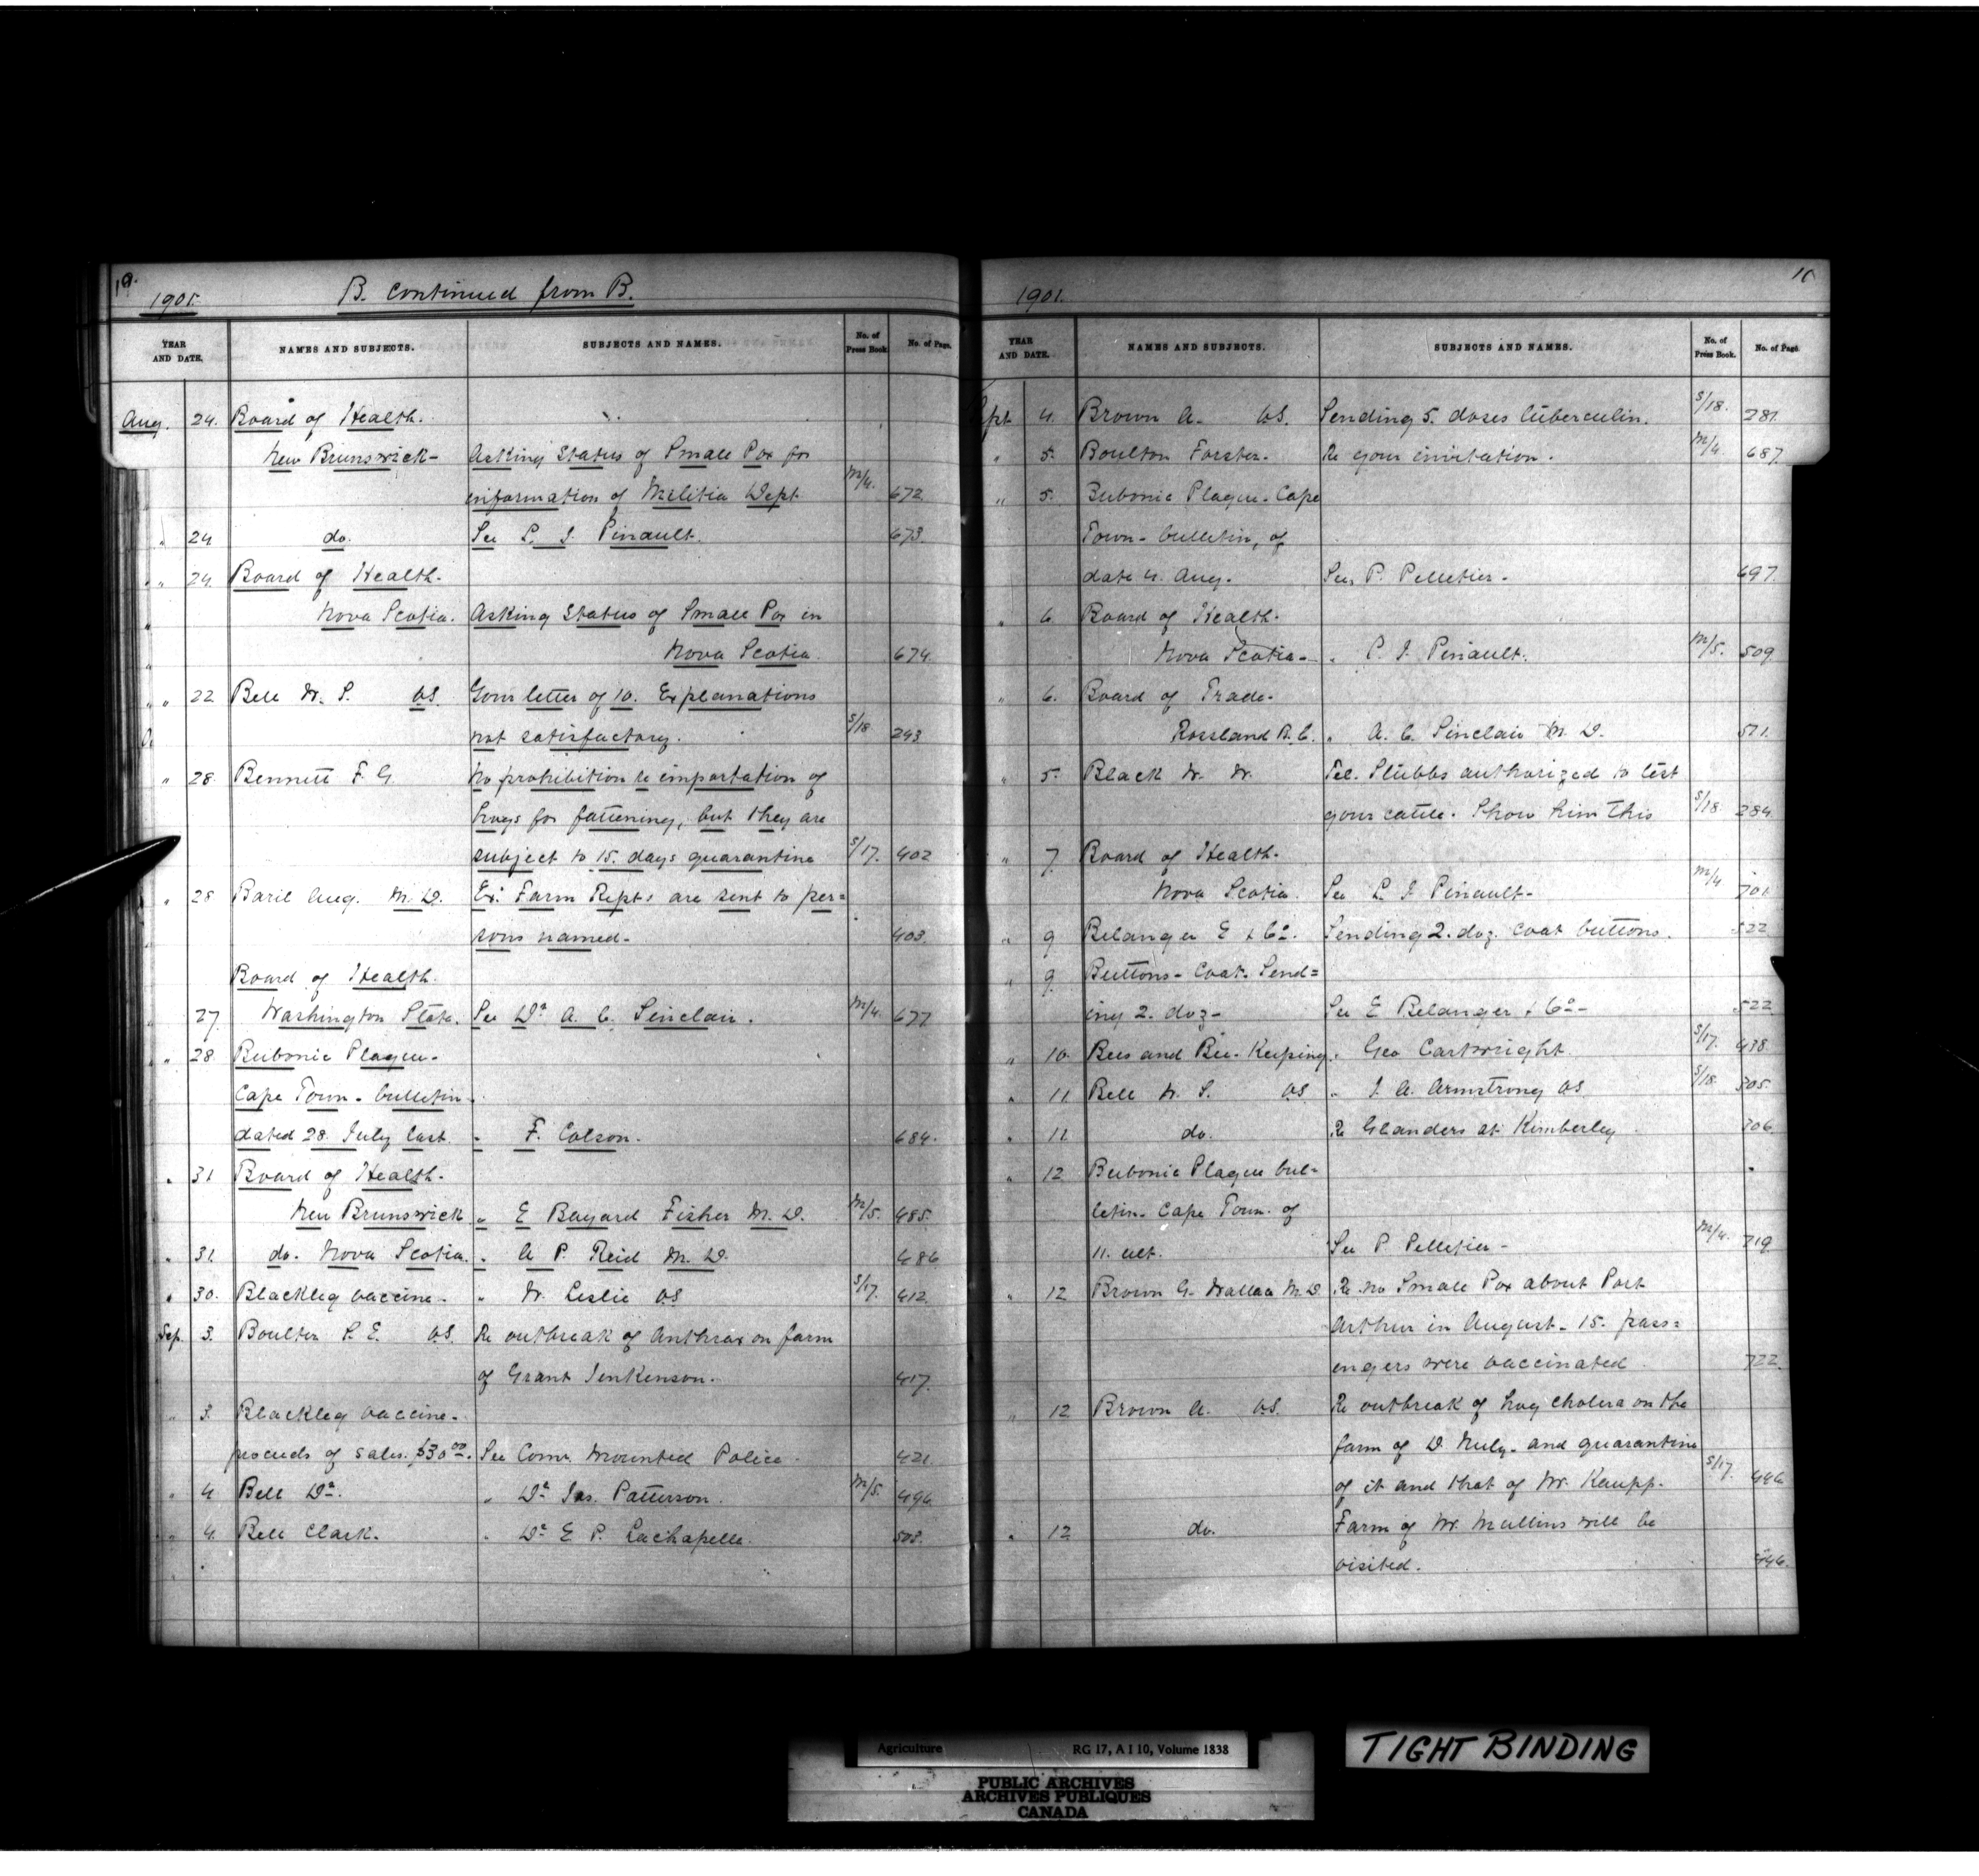 19.
1901. B. continued from B.
YEAR AND DATE. NAMES AND SUBJECTS. SUBJECTS AND NAMES. No. of Press Book. No. of Page.
Aug. 24. Board of Health.
New Brunswick- Asking Status of Small Pox for
information of Militia Dept M/4. 672
" 24 do. See L. J. Pinault. 673.
" 24. Board of Health.
Nova Scotia. Asking Status of Small Pox in
Nova Scotia. 674.
" 22 Bell W. S. VS. Your letter of 10. Explanations
not satisfactory. S/18 243
" 28. Bennett F. G. No prohibition re importation of
hogs for fattening, but they are
subject to 15. days quarantine S/17. 402
" 28 Baril Aug. M.D. Ex. Farm Repts are sent to per=
sons named- 403.
Board of Health.
27 Washington State. See Dr. A. C. Sinclair. M/4. 677
" 28. Bubonic Plague-
Cape Town - bulletin
dated 28. July last. " F. Colson. 684.
" 31 Board of Health.
New Brunswick " E Bayard Fisher M.D. M/5. 485.
" 31. do. Nova Scotia. " A P. Reid M.D. 486
" 30. Blackleg vaccine- " W. Leslie VS S/17. 412
Sep. 3. Boulter S. E. VS. Re outbreak of Anthrax on farm
of Grant Jenkenson. 417.
" 3. Blackleg vaccine-
proceeds of sales. $30 00. See Comr. Mounted Police. 421
" 4 Bell Dr. " Dr Jas. Patterson. M/5. 496.
" 4. Bell Clark. " Dr E P. Lachapelle. 508.
1901.
YEAR AND DATE. NAMES AND SUBJECTS. SUBJECTS AND NAMES. No. of Press Book. No. of Page.
Sept 4. Brown A. VS. Sending 5. doses tuberculin. S/18. 281.
" 5. Boulton Forster. Re your invitation. M/4. 687
" 5. Bubonic Plague - Cape
Town - bulletin, of
date 4. Aug. See, P. Pelletier- 697
" 6 Board of Health.
Nova Scotia- " P. J. Pinault. M/5. 509
" 6. Board of Trade-
Rossland B.C. " A. C. Sinclair M.D. 511.
" 5. Black W. W. Tel. Stubbs authorized to test
your cattle. Show him this S/18. 284
" 7. Board of Health.
Nova Scotia. See L. J Pinault- M/4 701
" 9 Belanger E & Co. Sending 2. doz. coat buttons. 522
" 9. Buttons - Coat. Send=
ing 2. doz- See E Belanger & Co- 522
" 10. Bees and Bee-Keeping. " Geo Cartwright S/17. 438
" 11 Bell W. S. VS " J. A. Armstrong VS. S/18. 305.
" 11 do. Re Glanders at Kimberley 306
" 12 Bubonic Plague bul=
letin. Cape Town. of
11. ult. See P Pelletier- M/4. 719
" 12 Brown G. Wallace M.D Re no Small Pox about Port
Arthur in August. 15. pass=
engers were vaccinated. 722.
" 12 Brown A. VS. Re outbreak of hog cholera on the
farm of D. Nuly. and quarantine
of it and that of W. Kaupp. S/17. 446
" 12 do. Farm of W. Mullins will be
visited. 446.
Agriculture RG 17, A I 10, Volume 1838
PUBLIC ARCHIVES
ARCHIVES PUBLIQUES
CANADA
TIGHT BINDING